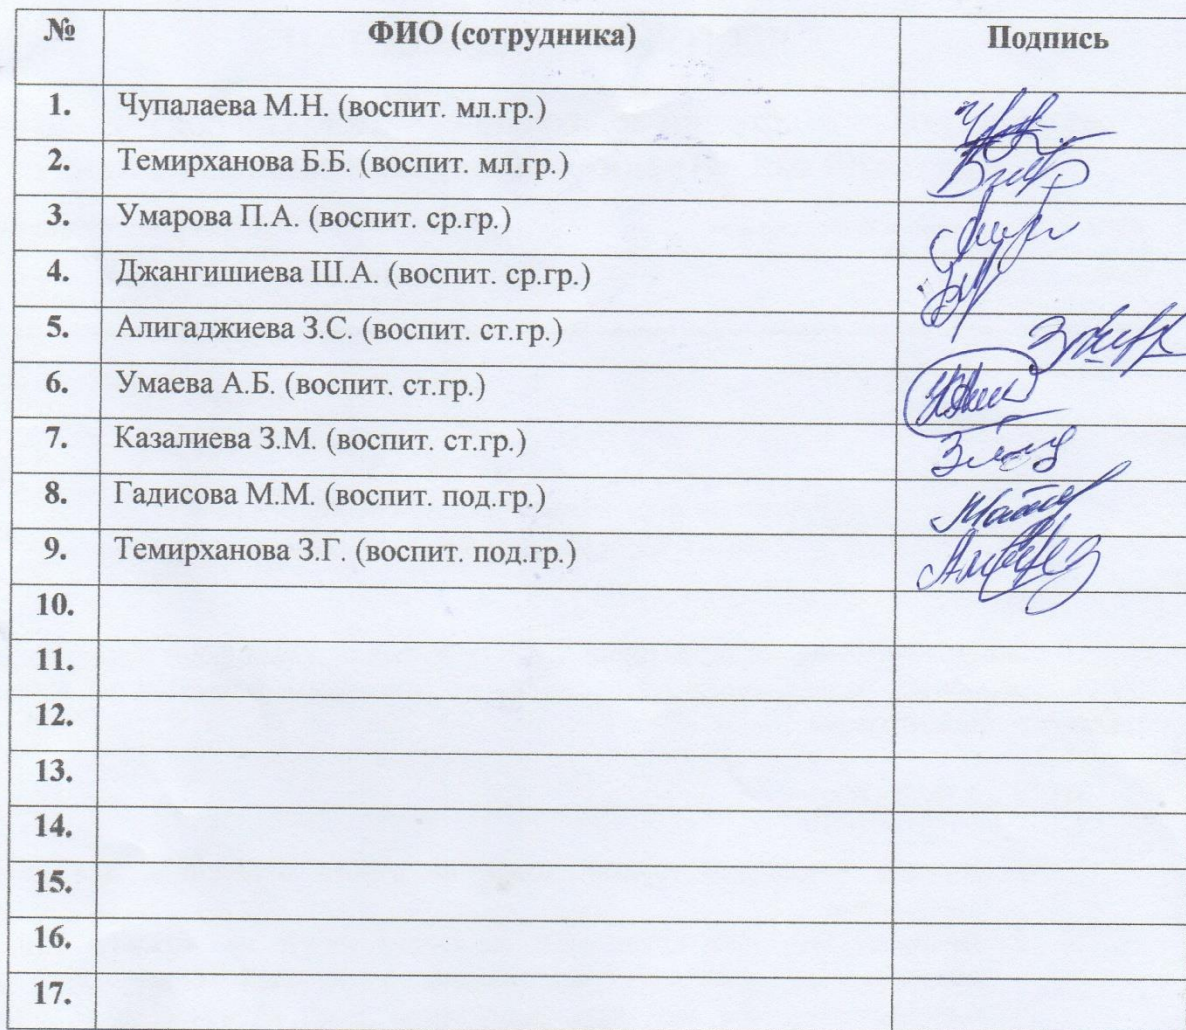 № ФИО (сотрудника) Подпись
1. Чупалаева М.Н. (воспит. мл.гр.)
2. Темирханова Б.Б. (воспит. мл.гр.)
3. Умарова П.А. (воспит. ср.гр.)
4. Джангишиева Ш.А. (воспит. ср.гр.)
5. Алигаджиева З.С. (воспит. ст.гр.)
6. Умаева А.Б. (воспит. ст.гр.)
7. Казалиева З.М. (воспит. ст.гр.)
8. Гадисова М.М. (воспит. под.гр.)
9. Темирханова З.Г. (воспит. под.гр.)
10.
11.
12.
13.
14.
15.
16.
17.